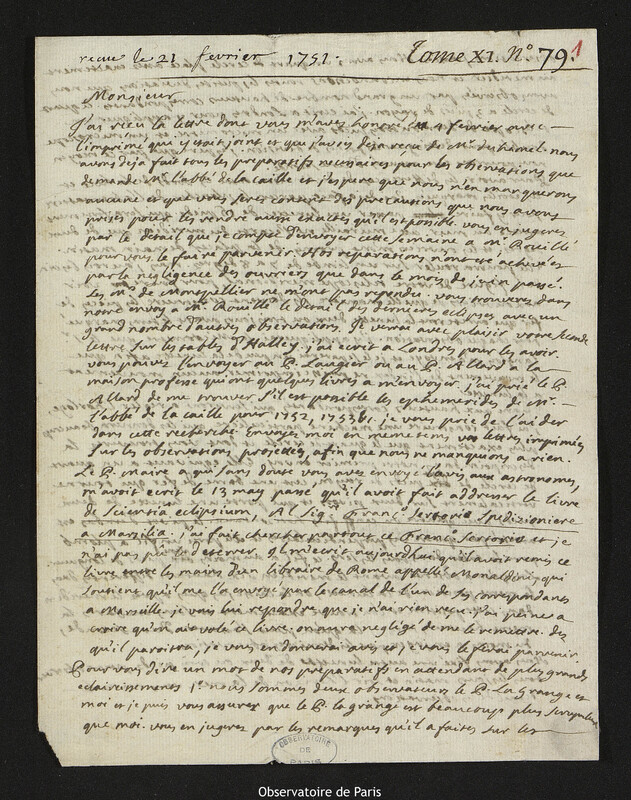 recue le 21 fevrier 1751.
Tome XI. N° 79. 1
Monsieur
J'ai recu la lettre dont vous m'aves honoré le 4 fevrier avec
l'imprimé qui y etoit joint et que j'avois deja recu de Mr. du hamel. nous
avons deja fait tous les preparatifs necessaires pour les observations que
demande Mr. l'abbé de la caille et j'espere que nous n'en manquerons
aucune et que vous serés content des precautions que nous avons
prises pour les rendre aussi exactes qu'il est possible. vous en jugeres
par le detail que je compte d'envoyer cette semaine a Mr. Rouillé
pour vous le faire parvenir. Nos reparations n'ont eté achevées
par la negligence des ouvriers que dans le mois de juin passé.
Les Mrs. de Montpellier ne m'ont pas repondu. vous trouveres dans
notre envoy a Mr. Rouillé le detail des dernieres eclipses avec un
grand nombre d'autres observations. Je verrai avec plaisir votre seconde
lettre sur les tables d'Halley. j'ai ecrit a Londres pour les avoir.
vous pouvez l'envoyer au P. Laugier ou au P. Allard a la
maison professe qui ont quelques livres a m'envoyer. j'ai prié le P.
Allard de me trouver s'il est possible les ephemerides de Mr.
l'abbé de la caille pour 1752, 1753 &c. je vous prie de l'aider
dans cette recherche. Envoyez moi en meme tems vos lettres imprimées
sur les observations projettées, afin que nous ne manquions a rien.
Le P. maire a qui sans doute vous avez envoyé l'avis aux astronomes,
m'avoit ecrit le 13 may passé qu'il avoit fait addresser le livre
de scientia eclipsium, Al Sig. Franc. Sertorio Spedizioniere
a Marsilia. j'ai fait chercher partout ce Franc. Sertorio et je
n'ai pas pu le deterrer. Il m'ecrit aujourdhui qu'il avoit remis ce
livre entre les mains d'un libraire de Rome appellé Monaldini, qui
soutient qu'il me l'a envoyé par le canal de l'un de ses correspondants
a Marseille. je vais lui repondre que je n'ai rien recu. j'ai peine a
croire qu'on ait volé ce livre. on aura negligé de me le remettre. des
qu'il paroitra, je vous en donnerai avis et je vous le ferai parvenir
Pour vous dire un mot de nos preparatifs en attendant de plus grands
eclaircissements 1° nous sommes deux observateurs le P. La Grange et
moi et je puis vous assurer que le P. la grange est beaucoup plus scrupuleux
que moi. vous en jugeres par les remarques qu'il a faites sur les
OBSERVATOIRE
DE
PARIS
Observatoire de Paris